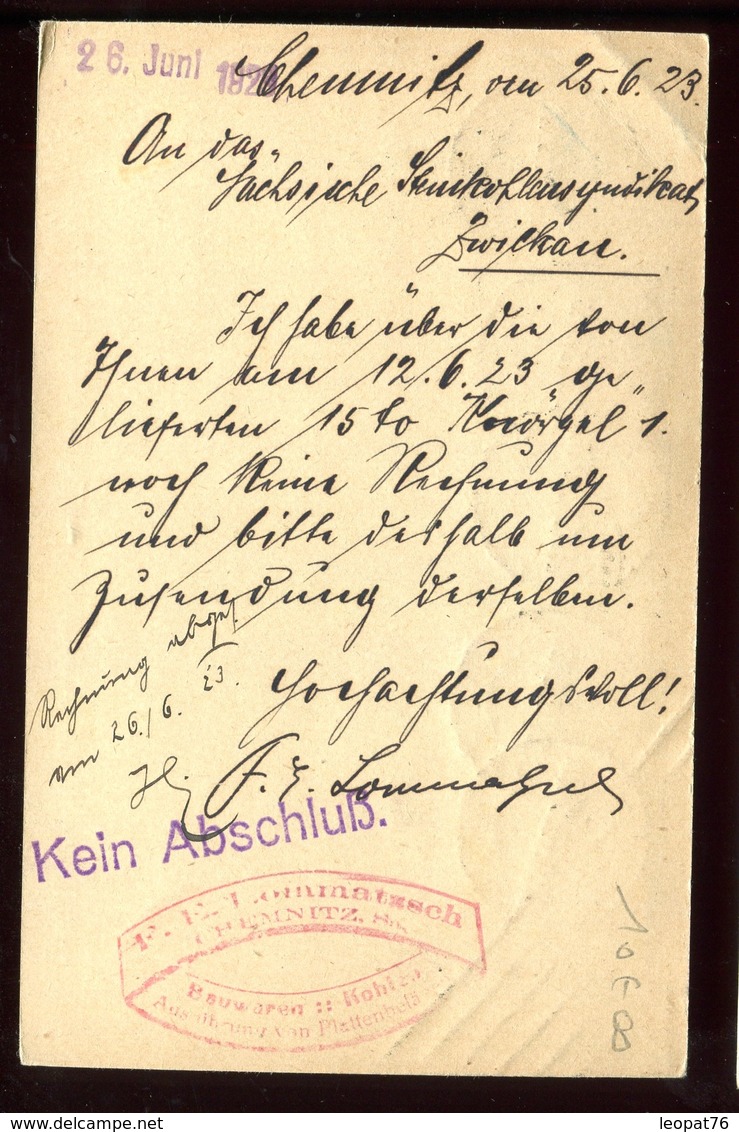 26. Juni 192
Chemnitz, am 25.6.23.
An das
Sächsische Steinkohlensyndikat,
Zwickau.
Ich habe über die von
Ihnen am 12.6.23 ge
lieferten 15 to "Knörpel" 1.
noch keine Rechnung
und bitte deshalb um
Zusendung derselben.
Hochachtungsvoll!
F. E. Lommatzsch
Rechnung abges.
am 26./6. 23.
Kein Abschluß.
F. E. Lommatzsch
CHEMNITZ, Sa.
Bauwaren :: Kohlen
Ausführung von Plattenbelä
1068
leopat76